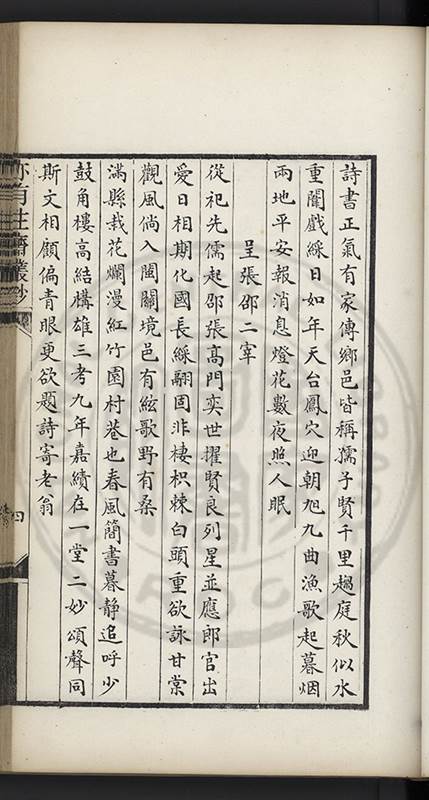 詩書正氣有家傳鄉邑皆稱孺子賢千里趨庭秋似水
重闈戲綵日如年天台鳳穴迎朝旭九曲漁歌起暮烟
兩地平安報消息燈花數夜照人眠
呈張邵二宰
從祀先儒起邵張高門奕世擢賢良列星並應郎官出
愛日相期化國長綵翮固非棲枳棘白頭重欲詠甘棠
觀風倘入閩關境邑有絃歌野有桑
滿縣栽花爛漫紅竹園村巷也春風簡書暮靜追呼少
鼓角樓高結搆雄三考九年嘉績在一堂二妙頌聲同
斯文相顧偏青眼更欲題詩寄老翁
亦有生齋叢鈔
四